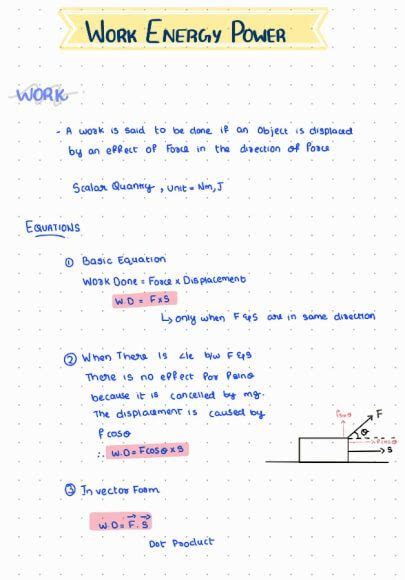 WORK ENERGY POWER
WORK
- A work is said to be done if an object is displaced
by an effect of Force in the direction of Force
Scalar Quantity, Unit = Nm, J
EQUATIONS
① Basic Equation
Work Done = Force x Displacement
W.D = F x S
↳ only when F & S are in same direction
② When There is ∠le b/w F & S
There is no effect For Fsinθ
because it is cancelled by mg.
The displacement is caused by
F cosθ
∴ W.D = Fcosθ x S
Fsinθ
F
θ
Fcosθ
S
③ In vector Form
W.D = F⃗ . S⃗
Dot Product